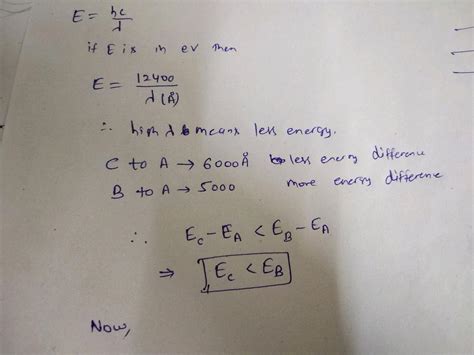 E = hc/λ
if E is in ev then
E = 12400/λ(Å)
∴ high λ means less energy.
C to A → 6000Å less energy difference
B to A → 5000 more energy difference
∴ E_C - E_A < E_B - E_A
⇒ E_C < E_B
Now,